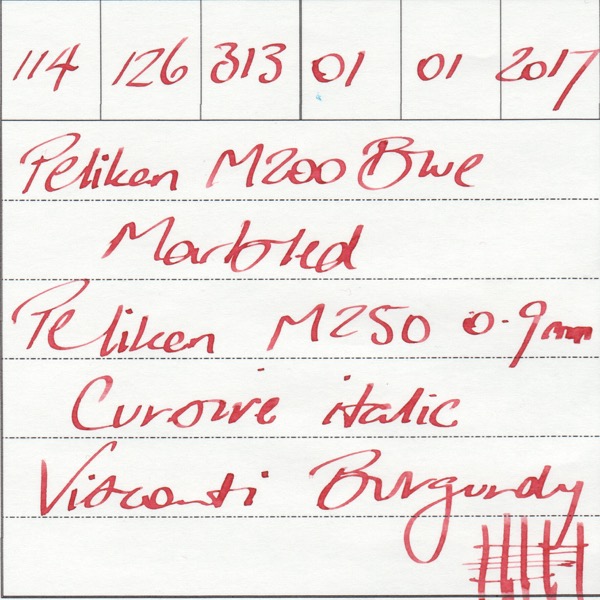 114 126 313 01 01 2017
Pelikan M200 Blue
Marbled
Pelikan M250 0.9mm
Cursive italic
Visconti Burgundy